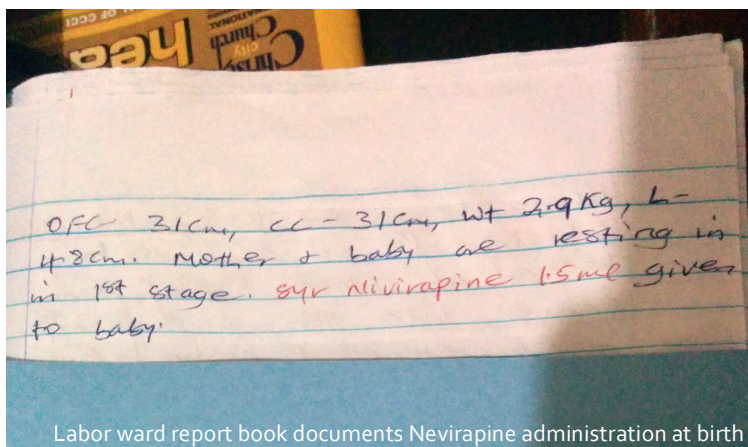 OFC 31cm, CC - 31cm, wt 2.9kg, L-
48cm. Mother & baby are resting in
in 1st stage. syr Nivirapine 1.5ml given
to baby.
hea
Christ
city
Church
Labor ward report book documents Nevirapine administration at birth